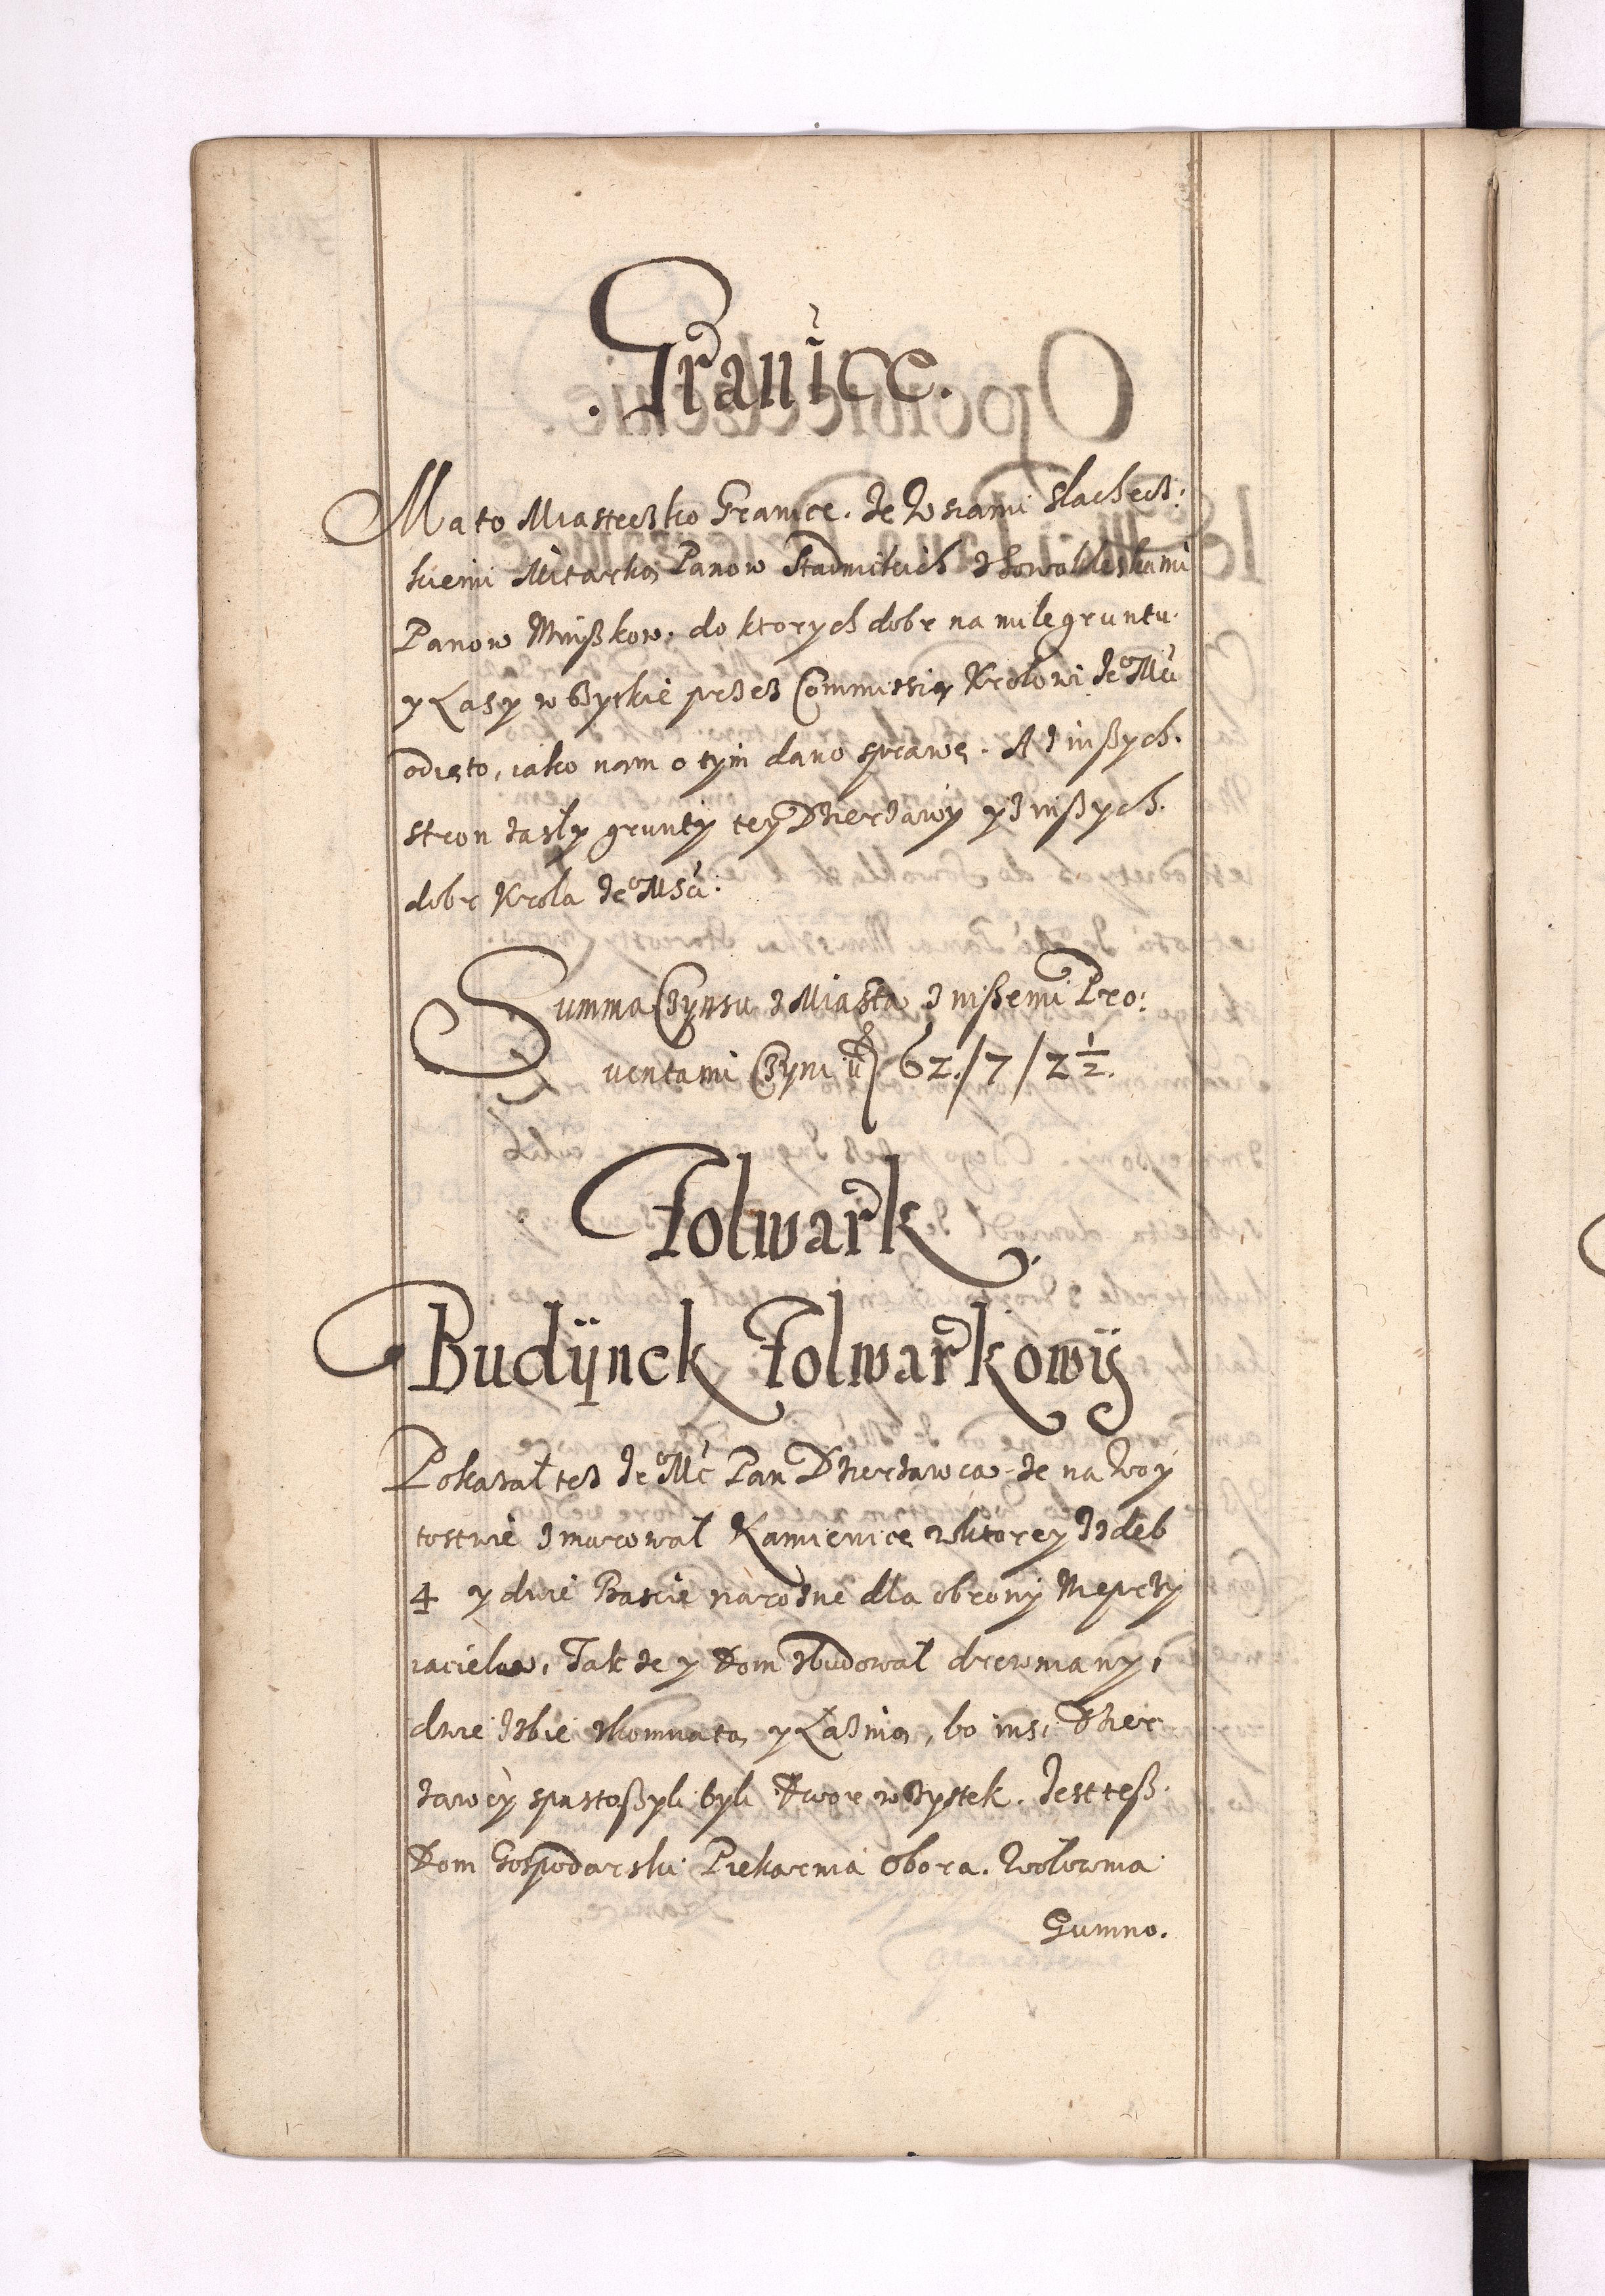 . Granice.
Ma to Miasteczko Granice. Ze Wsiami slachecz:
kiemi Mitarką Panow Stadnickich
Panow Mnißkow. do ktorych dobr na mile gruntu.
y Lasy wßyskie przez Commissią Krolowi Jeº Mći
odięto, iako nam o tym dano sprawę. A z inßych.
stron zasły grunty tey Dzierzawy y z inßych.
dobr Krola Jeº Mśći:
Summa Czynsu z Miasta z inßemi Pro:
uentami Czyni 62./7/2½.
Folwark.
Budÿnck Folwarkowÿ
Pokazał tez Jeº Mć Pan Dzierzawca ze na Woy
tostwie zmurowal Kamienicę w ktorey Izdeb
4 y dwie Bascie narozne dla obrony Nieprzy
iaciela, Tak ze y Dom zbudował drewniany,
dwie Izbie z komnatą y Łaznią, bo insi Dzier
zawcy spustoßyli byli Dwor wszystek. Jest teß.
Dom Gospodarski Piekarnia Obora. Wołownia
Gumno.